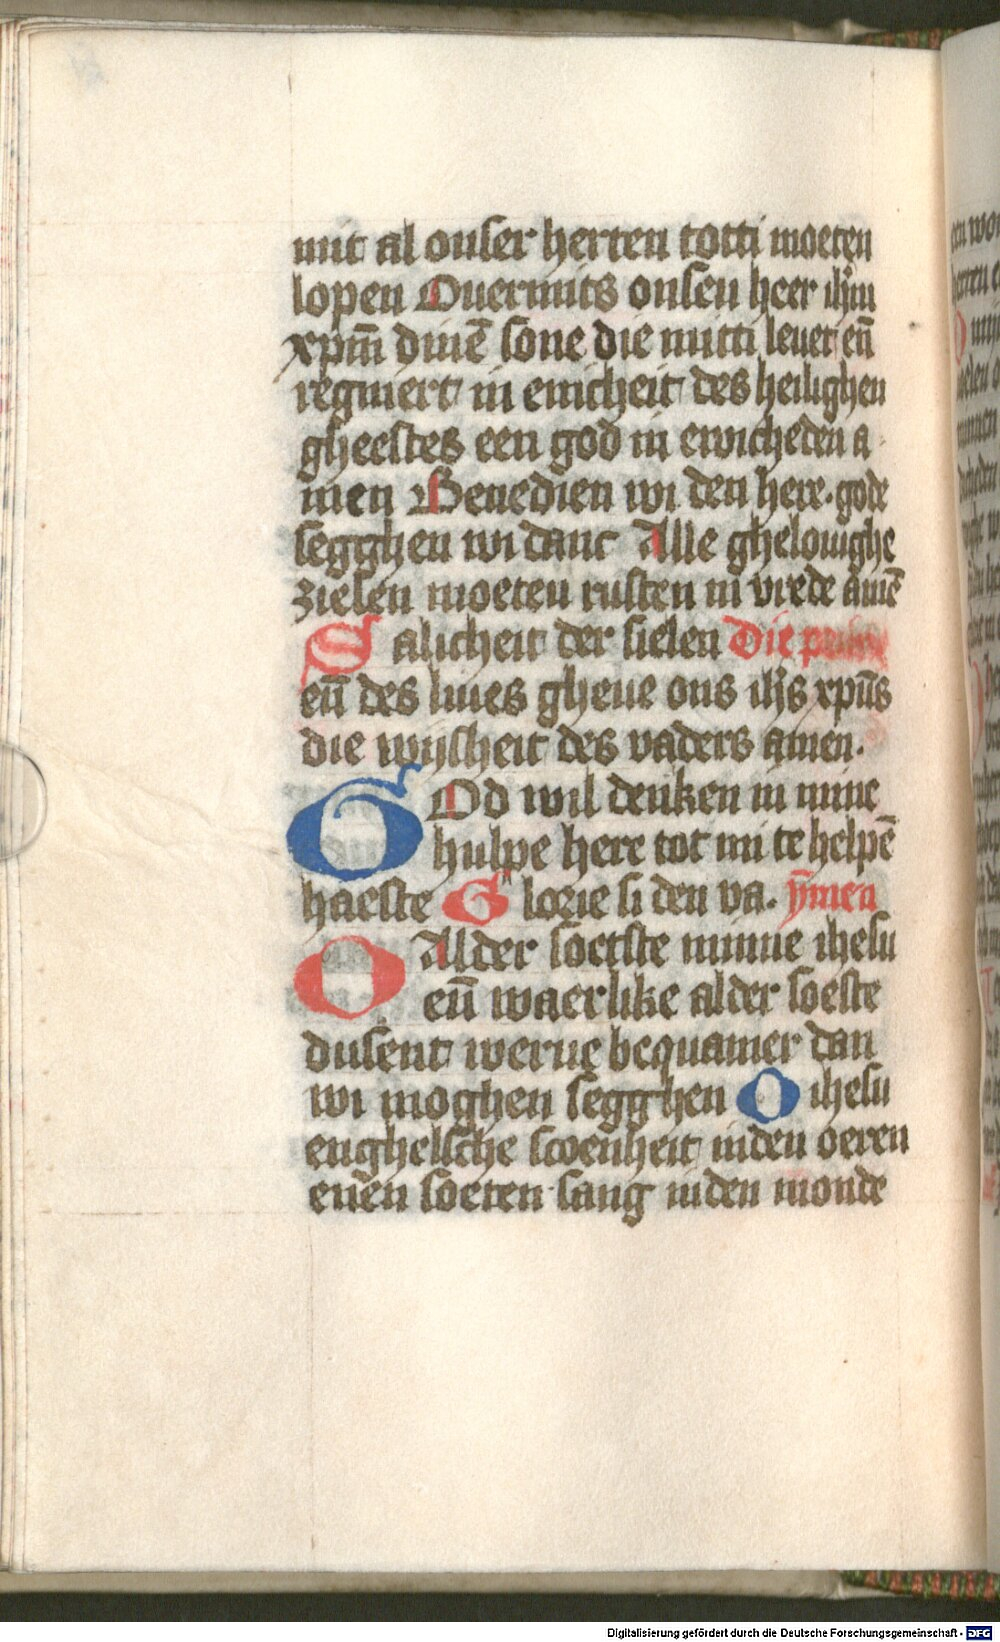 mit al onser herten totti moeten
lopen Ouermits onsen heer ihm
xpm̄ dinē sone die mitti leuet en̄
regniert in enicheit des heilighen
gheestes een god in ewicheden a
men Benedien wi den here. gode
segghen wi danc Alle ghelouighe
zielen moeten rusten in vrede amē
Salicheit der sielen Die
en̄ des liues gheue ons ihs xpūs
die wijsheit des vaders amen.
GOd wil denken in mine
hulpe here tot mi te helpē
haeste Glorie si den va. ȳmen
O Alder soetste minne ihesu
en̄ waerlike alder soeste
dusent werue bequamer dan
wi moghen segghen O ihesu
enghelsche scoenheit inden oeren
enen soeten sang inden monde
Digitalisierung gefördert durch die Deutsche Forschungsgemeinschaft - DFG